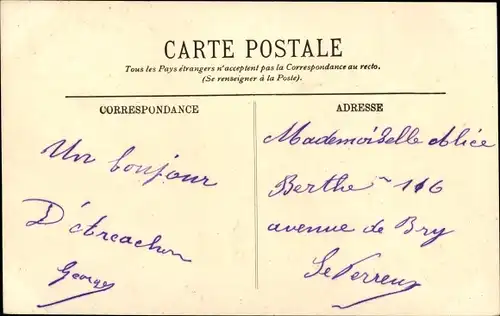 CARTE POSTALE
Tous les Pays étrangers n'acceptent pas la Correspondance au recto.
(Se renseigner à la Poste).
CORRESPONDANCE
Un bonjour
D'Arcachon
Georges
ADRESSE
Mademoiselle Alice
Berthe 116
avenue de Bry
Le Perreux